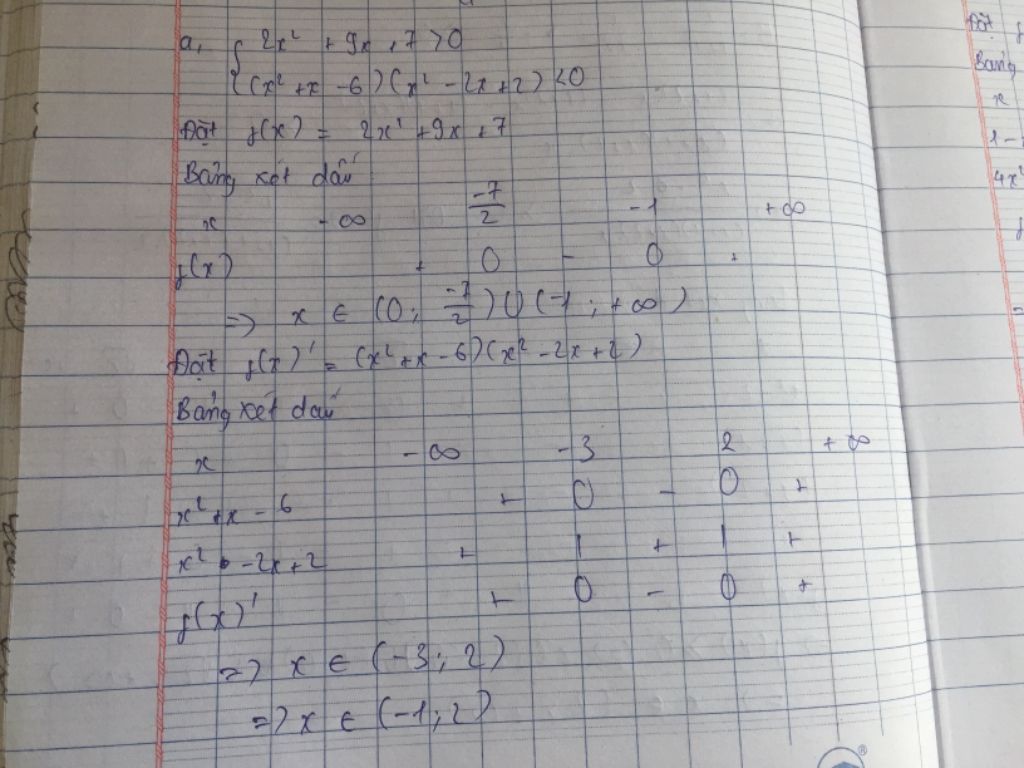 a, { 2x² + 9x + 7 > 0
{ (x² + x - 6)(x² - 2x + 2) < 0
Đặt f(x) = 2x² + 9x + 7
Bảng xét dấu
x -∞ -7/2 -1 +∞
f(x) + 0 - 0 +
=> x ∈ (0; -7/2) U (-1; +∞)
Đặt f(x)' = (x² + x - 6)(x² - 2x + 2)
Bảng xét dấu
x -∞ -3 2 +∞
x² + x - 6 + 0 - 0 +
x² - 2x + 2 + | + | +
f(x)' + 0 - 0 +
=> x ∈ (-3; 2)
=> x ∈ (-1; 2)
Đặt f
Bảng
x
1 -
4x²
f
=
®